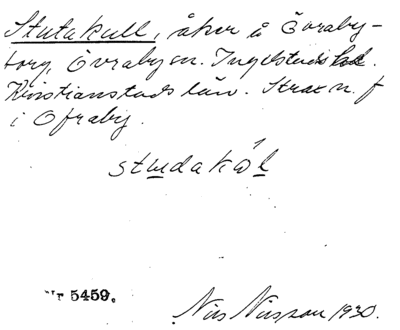 Stutakull, åker å Övraby-
torg, Övraby sn. Ingelstads hd.
Kristianstads län. Strax n. f
i Ofraby.
studakål
Nr 5459.
Nils Nilsson 1930.